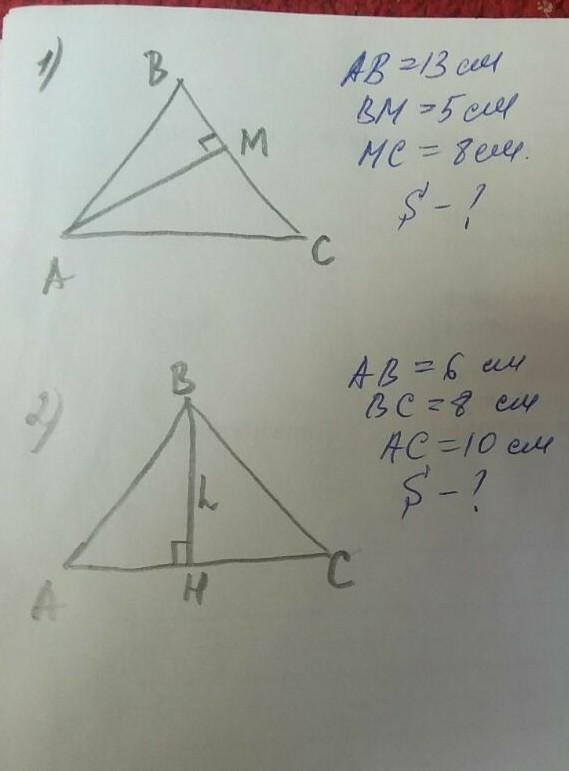 1)
B
M
A
C
AB = 13 см
BM = 5 см
MC = 8 см.
S - ?
2)
B
h
A
H
C
AB = 6 см
BC = 8 см
AC = 10 см
S - ?